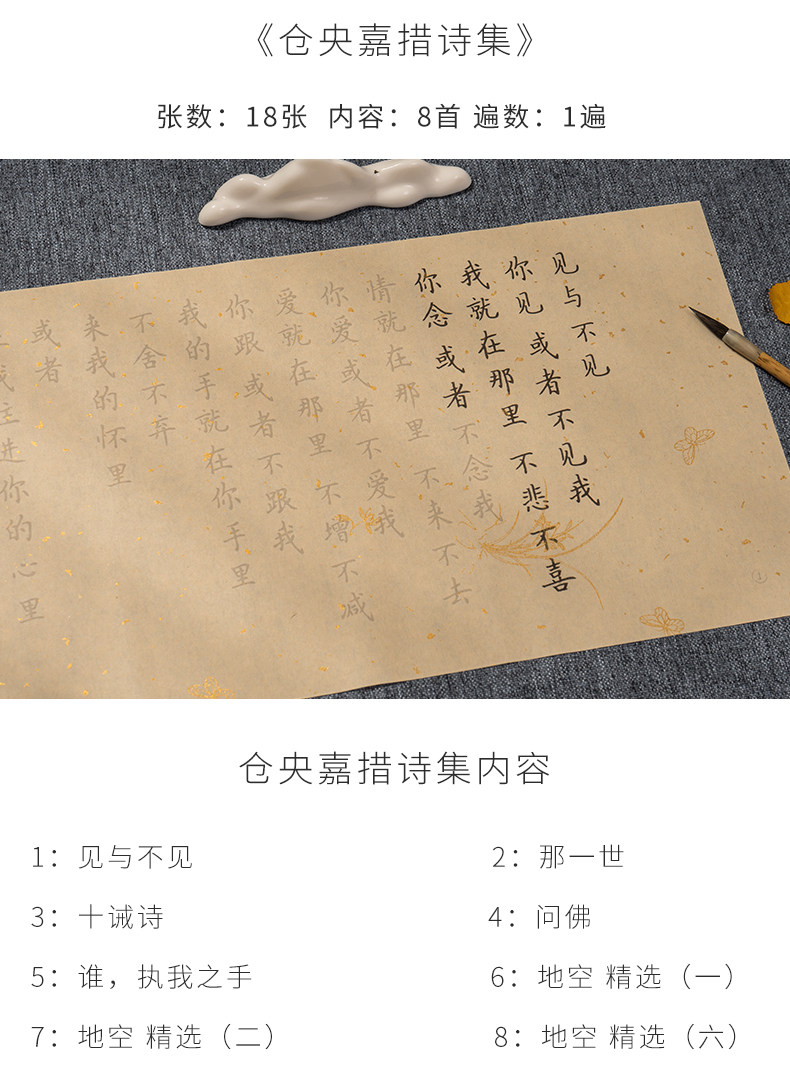 《仓央嘉措诗集》
张数：18张 内容：8首 遍数：1遍
见与不见
你见 或者不见我
我就在那里 不悲不喜
你念 或者 不念我
情就在那里 不来不去
你爱 或者不爱我
爱就在那里 不增不减
你跟 或者不跟我
我的手就在你手里
不舍不弃
来我的怀里
或者
我住进你的心里
1
仓央嘉措诗集内容
1：见与不见
2：那一世
3：十诫诗
4：问佛
5：谁，执我之手
6：地空 精选（一）
7：地空 精选（二）
8：地空 精选（六）